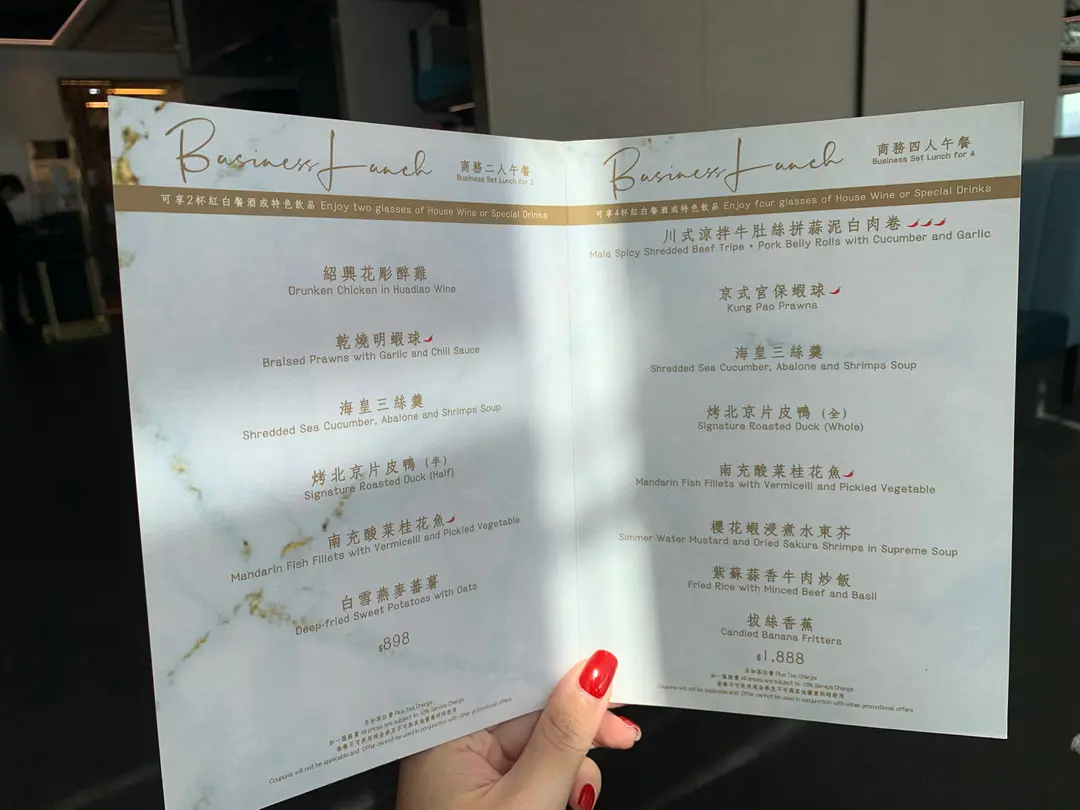 Business Lunch
商務二人午餐
Business Set Lunch for 2
可享2杯紅白餐酒或特色飲品 Enjoy two glasses of House Wine or Special Drinks
紹興花彫醉雞
Drunken Chicken in Huadiao Wine
乾燒明蝦球
Braised Prawns with Garlic and Chili Sauce
海皇三絲羹
Shredded Sea Cucumber, Abalone and Shrimps Soup
烤北京片皮鴨 (半)
Signature Roasted Duck (Half)
南充酸菜桂花魚
Mandarin Fish Fillets with Vermicelli and Pickled Vegetable
白雪燕麥蕃薯
Deep-fried Sweet Potatoes with Oats
$898
另加茶位費 Plus Tea Charge
加一服務費 All prices are subject to 10% Service Charge
套餐不可使用現金券及不可與其他優惠同時使用
Coupons will not be applicable and Offer cannot be used in conjunction with other promotional offers
Business Lunch
商務四人午餐
Business Set Lunch for 4
可享4杯紅白餐酒或特色飲品 Enjoy four glasses of House Wine or Special Drinks
川式涼拌牛肚絲拼蒜泥白肉卷
Mala Spicy Shredded Beef Tripe • Pork Belly Rolls with Cucumber and Garlic
京式宮保蝦球
Kung Pao Prawns
海皇三絲羹
Shredded Sea Cucumber, Abalone and Shrimps Soup
烤北京片皮鴨 (全)
Signature Roasted Duck (Whole)
南充酸菜桂花魚
Mandarin Fish Fillets with Vermicelli and Pickled Vegetable
櫻花蝦浸煮水東芥
Simmer Water Mustard and Dried Sakura Shrimps in Supreme Soup
紫蘇蒜香牛肉炒飯
Fried Rice with Minced Beef and Basil
拔絲香蕉
Candied Banana Fritters
$1,888
另加茶位費 Plus Tea Charge
加一服務費 All prices are subject to 10% Service Charge
套餐不可使用現金券及不可與其他優惠同時使用
Coupons will not be applicable and Offer cannot be used in conjunction with other promotional offers